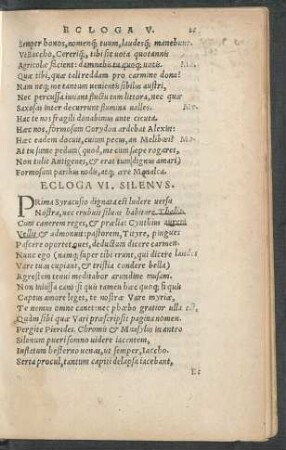 ECLOGA V.
Semper honos, nomenq; tuum, laudesq; manebunt.
Vt Baccho, Cereriq;, tibi sic uota quotannis
Agricolæ facient: damnabis tu quoq; uotis. Me.
Quæ tibi, quæ tali reddam pro carmine dona?
Nam neq; me tantum uenientis sibilus austri,
Nec percussa iuuant fluctu tam littora, nec quæ
Saxosas inter decurrunt flumina ualles. Me.
Hac te nos fragili donabimus ante cicuta.
Hæc nos, formosum Corydon ardebat Alexin:
Hæc eadem docuit, cuium pecus, an Melibœi? Mo.
At tu sume pedum, quod, me cum sæpe rogaret,
Non tulit Antigenes, & erat tum dignus amari)
Formosum paribus nodis, atq; ære Menalca.
ECLOGA VI. SILENVS.
PRima Syracusio dignata est ludere uersu
Nostra, nec erubuit siluas habitare Thalia.
Cum canerem reges, & prælia: Cynthius aurem
Vellit, & admonuit: pastorem, Tityre, pingues
Pascere oportet oues, deductum dicere carmen.
Nunc ego (namq; super tibi erunt, qui dicere laudes
Vare tuas cupiant, & tristia condere bella)
Agrestem tenui meditabor arundine musam.
Non iniussa cano: si quis tamen hæc quoq; si quis
Captus amore leget, te nostræ Vare myricæ,
Te nemus omne canet: nec phœbo gratior ulla est,
Quàm sibi quæ Vari præscripsit pagina nomen.
Pergite Pierides. Chromis & Mnasylus in antro
Silenum pueri somno uidere iacentem,
Inflatum hesterno uenas, ut semper, Iaccho.
Serta procul, tantum capiti delapsa iacebant,
Et